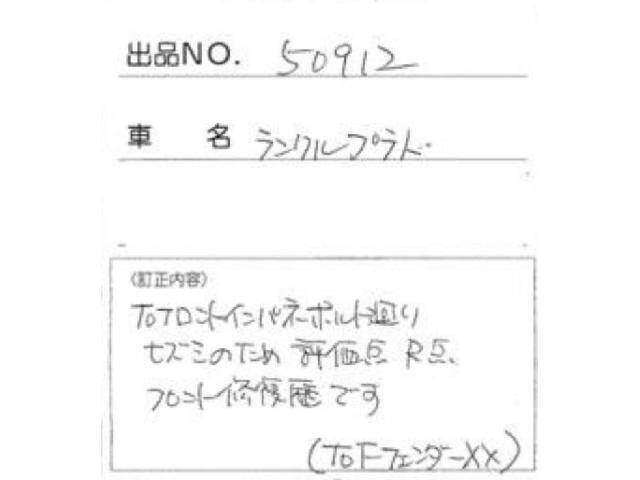 出品NO. 50912
車 名 ランクルプラド
(訂正内容)
フロントインパネーボルト廻り
セズミのため 評価点 R点、
フロント修復歴です
(フェンダーXX)